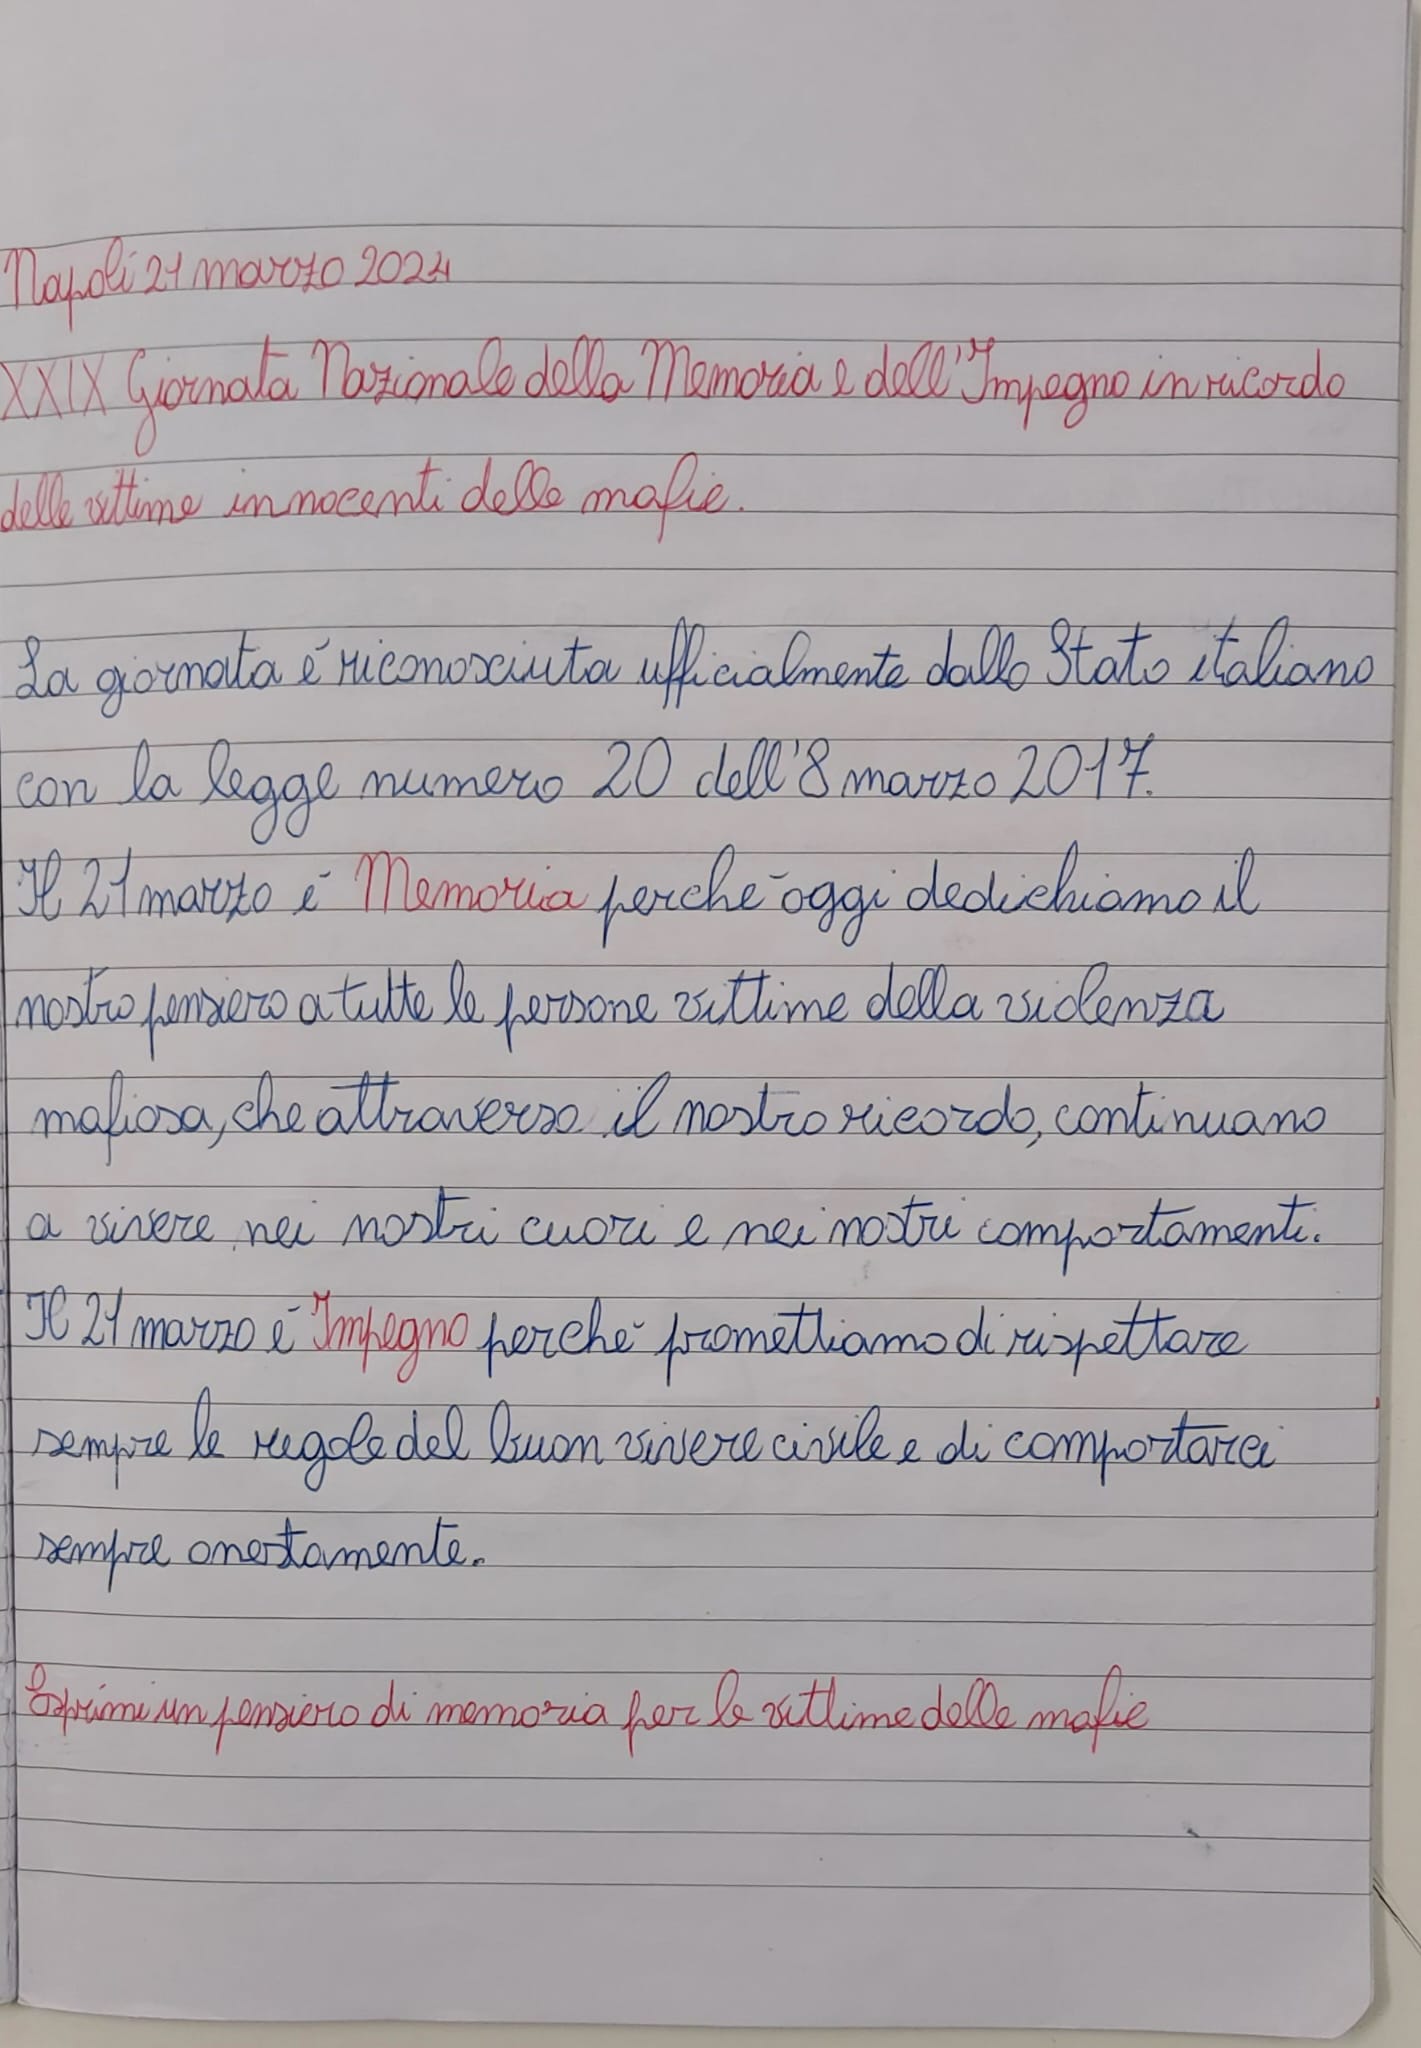 Napoli 21 marzo 2024
XXIX Giornata Nazionale della Memoria e dell'Impegno in ricordo
delle vittime innocenti delle mafie.
La giornata é riconosciuta ufficialmente dallo Stato italiano
con la legge numero 20 dell'8 marzo 2017.
Il 21 marzo é Memoria perché oggi dedichiamo il
nostro pensiero a tutte le persone vittime della violenza
mafiosa, che attraverso il nostro ricordo, continuano
a vivere nei nostri cuori e nei nostri comportamenti.
Il 21 marzo é Impegno perché promettiamo di rispettare
sempre le regole del buon vivere civile e di comportarci
sempre onestamente.
Esprimi un pensiero di memoria per le vittime delle mafie